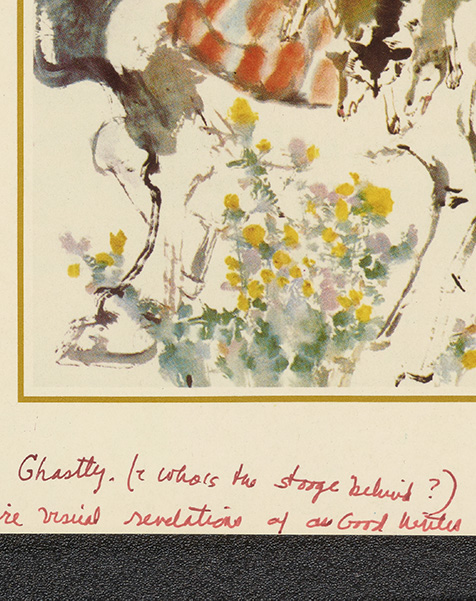 Ghastly. (& who's the stooge behind?)
re visual revelations of as Good